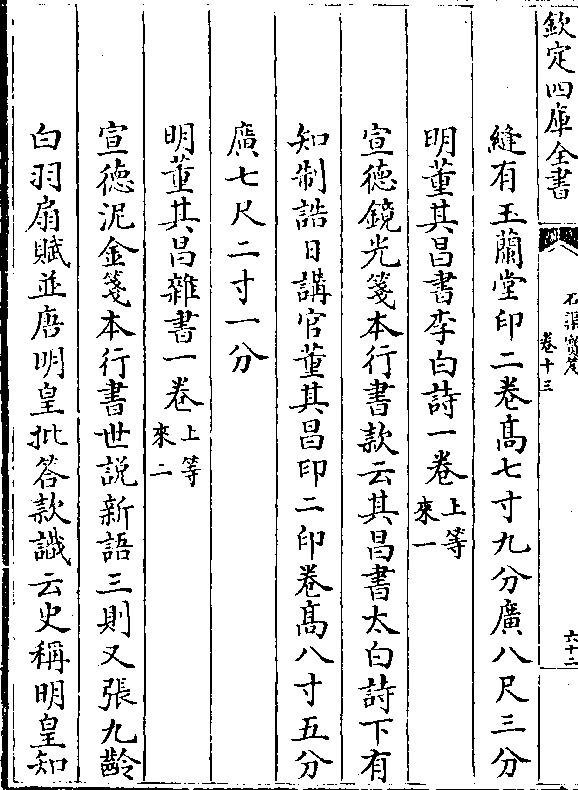 欽定四庫全書
石渠寳笈
卷十三
六十二
縫有玉蘭堂印二卷髙七寸九分廣八尺三分
明董其昌書李白詩一卷上等來一
宣徳鏡光箋本行書款云其昌書太白詩下有
知制誥日講官董其昌印二印卷髙八寸五分
廣七尺二寸一分
明董其昌雜書一卷上等來二
宣徳泥金箋本行書世説新語三則又張九齡
白羽扇賦並唐明皇批答款識云史稱明皇知